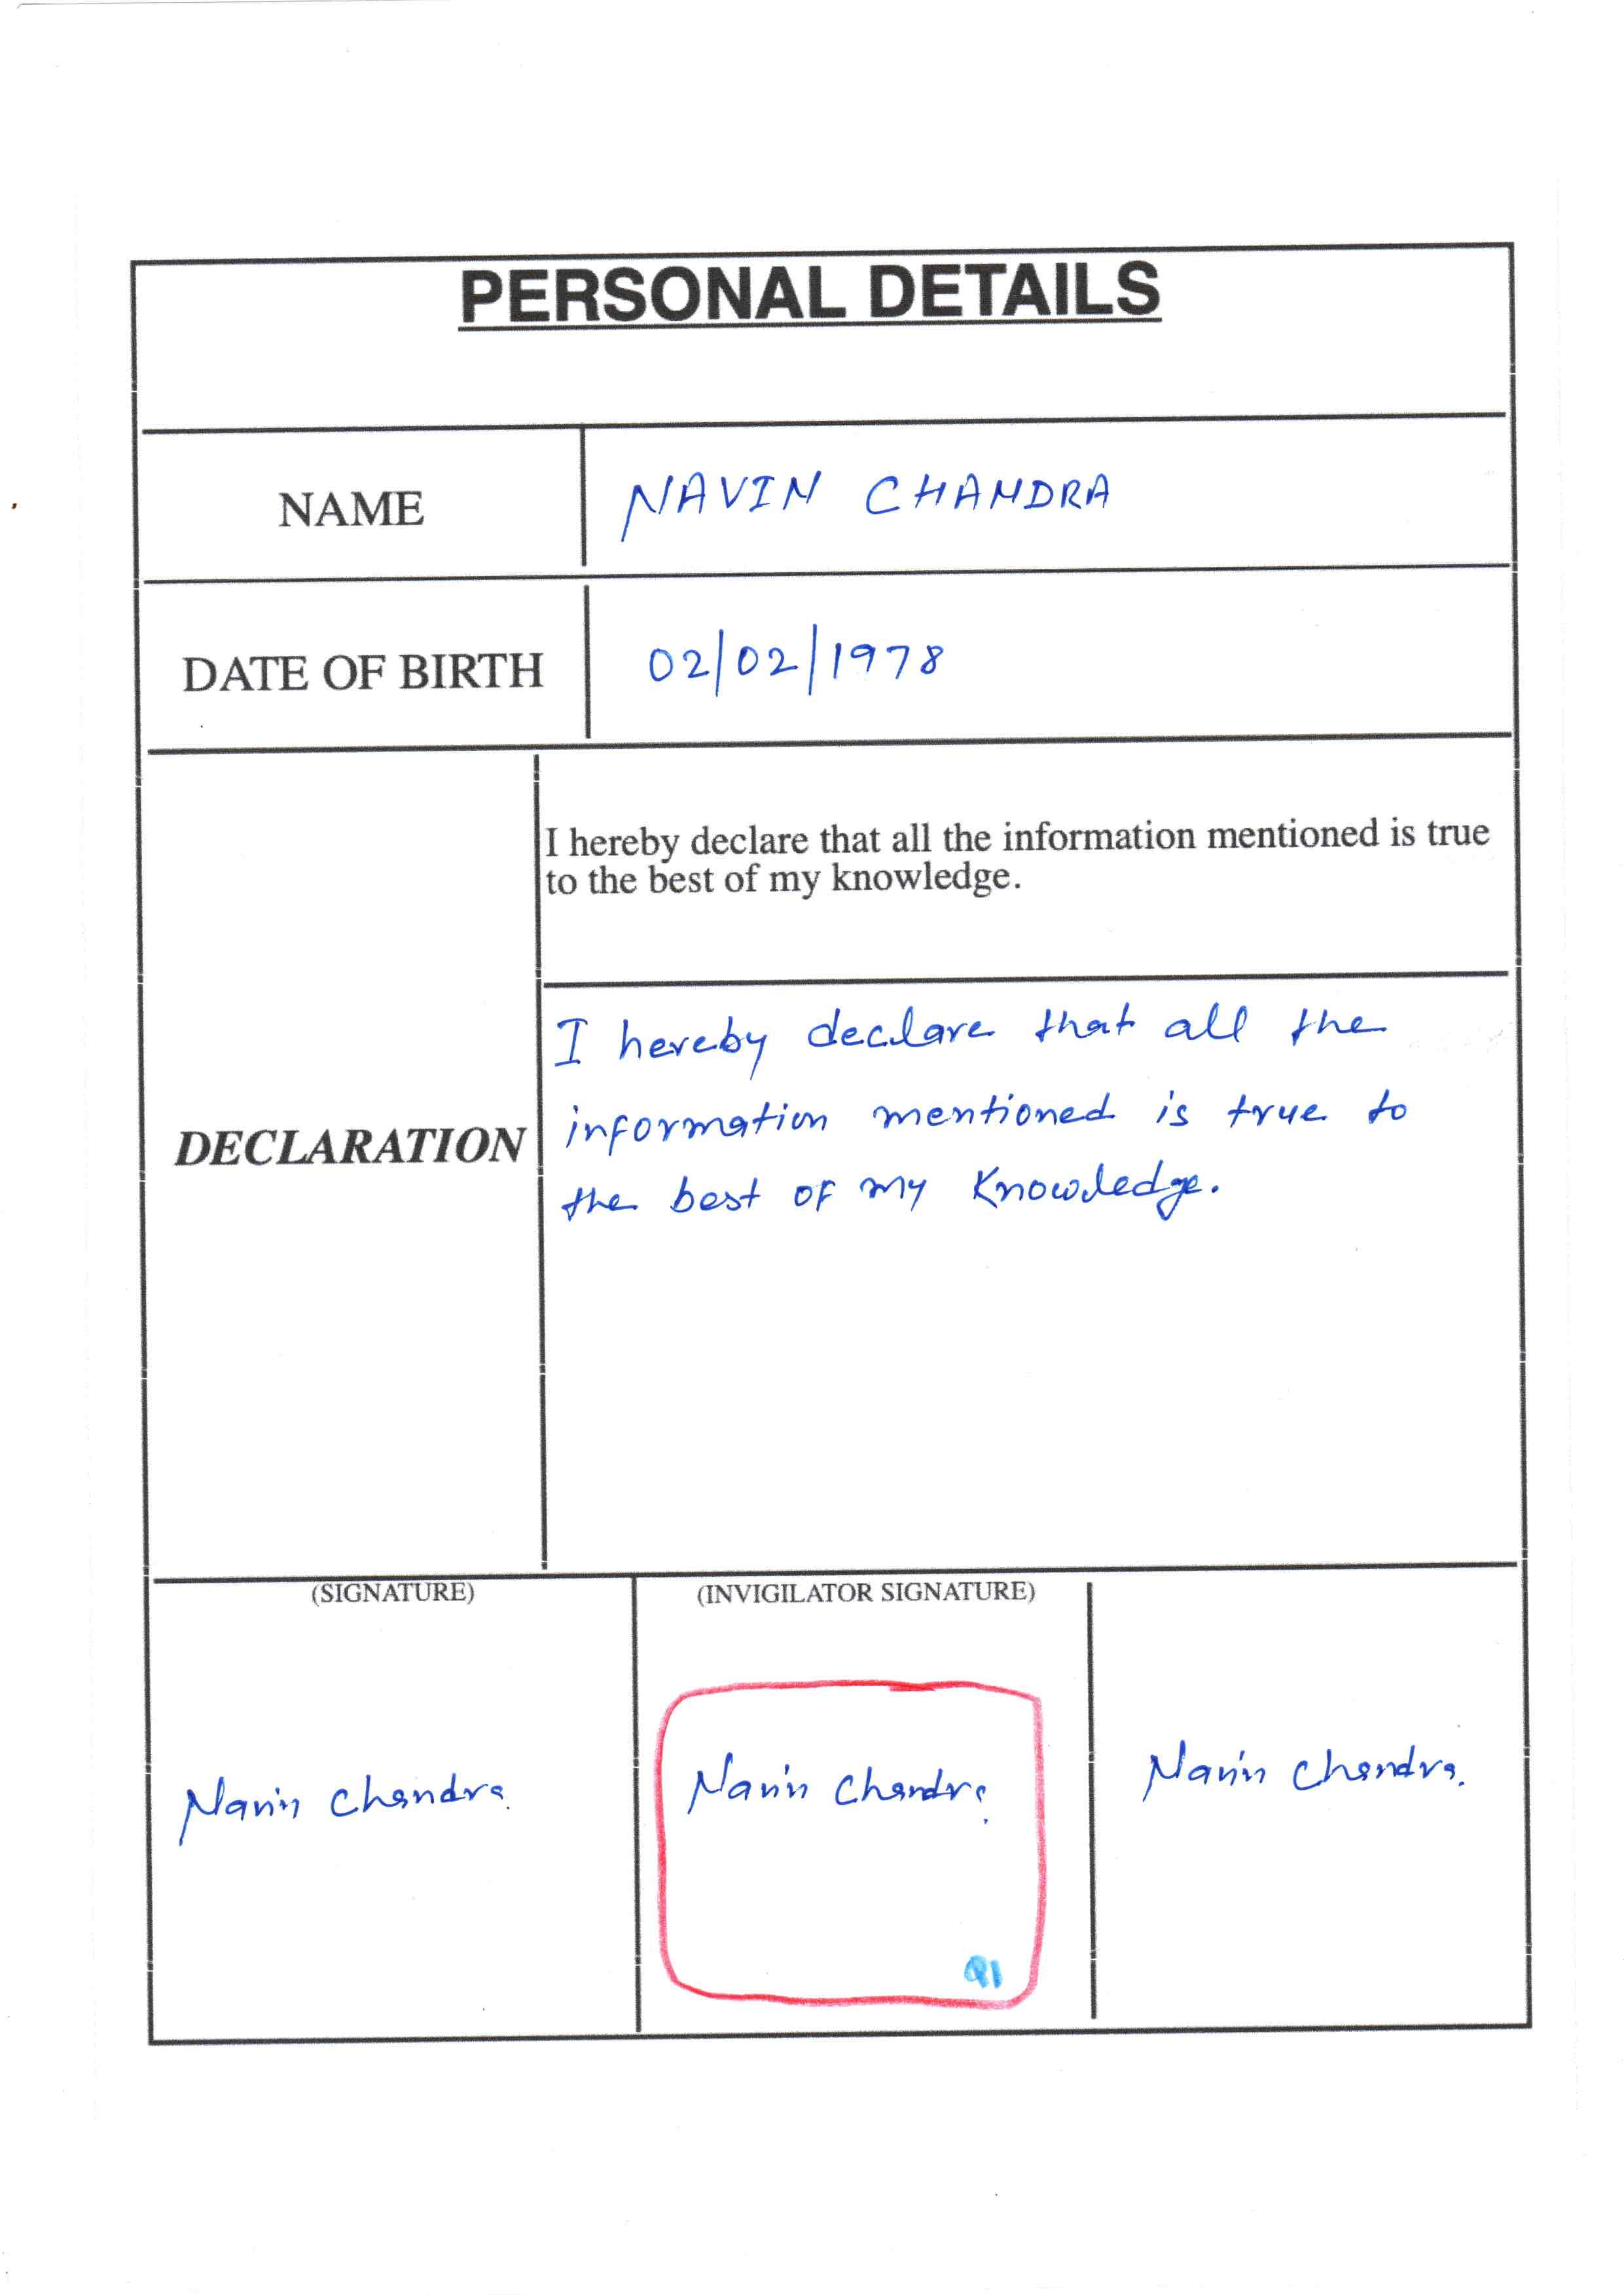 PERSONAL DETAILS
NAME
NAVIN CHANDRA
DATE OF BIRTH
02/02/1978
I hereby declare that all the information mentioned is true
to the best of my knowledge.
DECLARATION
I hereby declare that all the
information mentioned is true to
the best of my knowledge.
(SIGNATURE)
(INVIGILATOR SIGNATURE)
Navin Chandra.
Navin Chandra.
Navin Chandra.
Q1